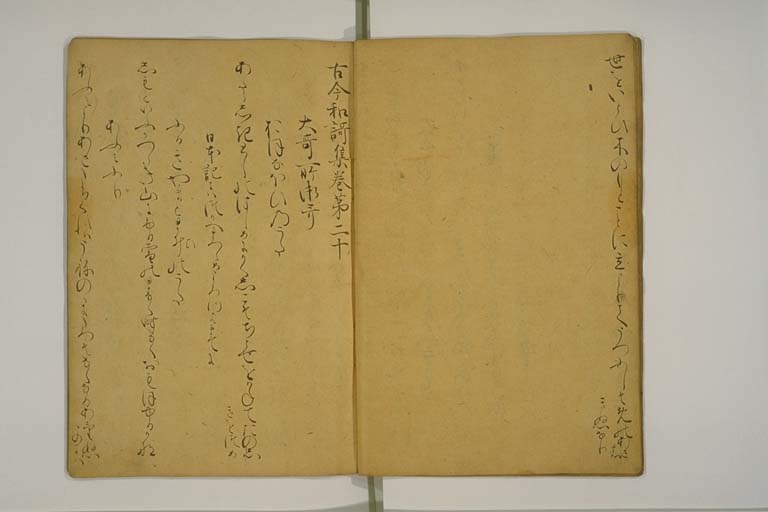 世をいとひ木のもとことに立よりてうつふしそめのあさ
のきぬなり
古今和謌集巻第二十
大哥所御哥
おほなほひのうた
あたらしきとしのはしめにかくしこそちとせをかねてたのし
きをつめ
日本記にはつかへまつらめよろつよまてに
ふるきやまとまひのうた
しもとゆふかつらき山にふる雪のまなく時なくおもほゆるかな
あふみふり
あふみよりあさたちくれはうねのゝにたつそなくなるあけぬ
このよは